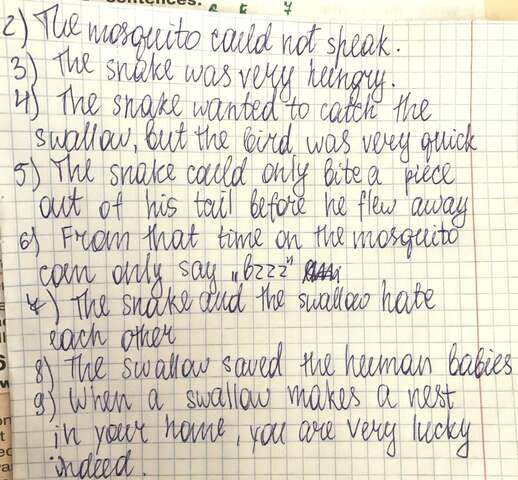 entences.
6 5 7
2) The mosquito could not speak.
3) The snake was very hungry.
4) The snake wanted to catch the
swallow, but the bird was very quick
5) The snake could only bite a piece
out of his tail before he flew away
6) From that time on the mosquito
can only say „bzzz"
7) The snake and the swallow hate
each other
8) The swallow saved the human babies
9) When a swallow makes a nest
in your home, you are very lucky
indeed.